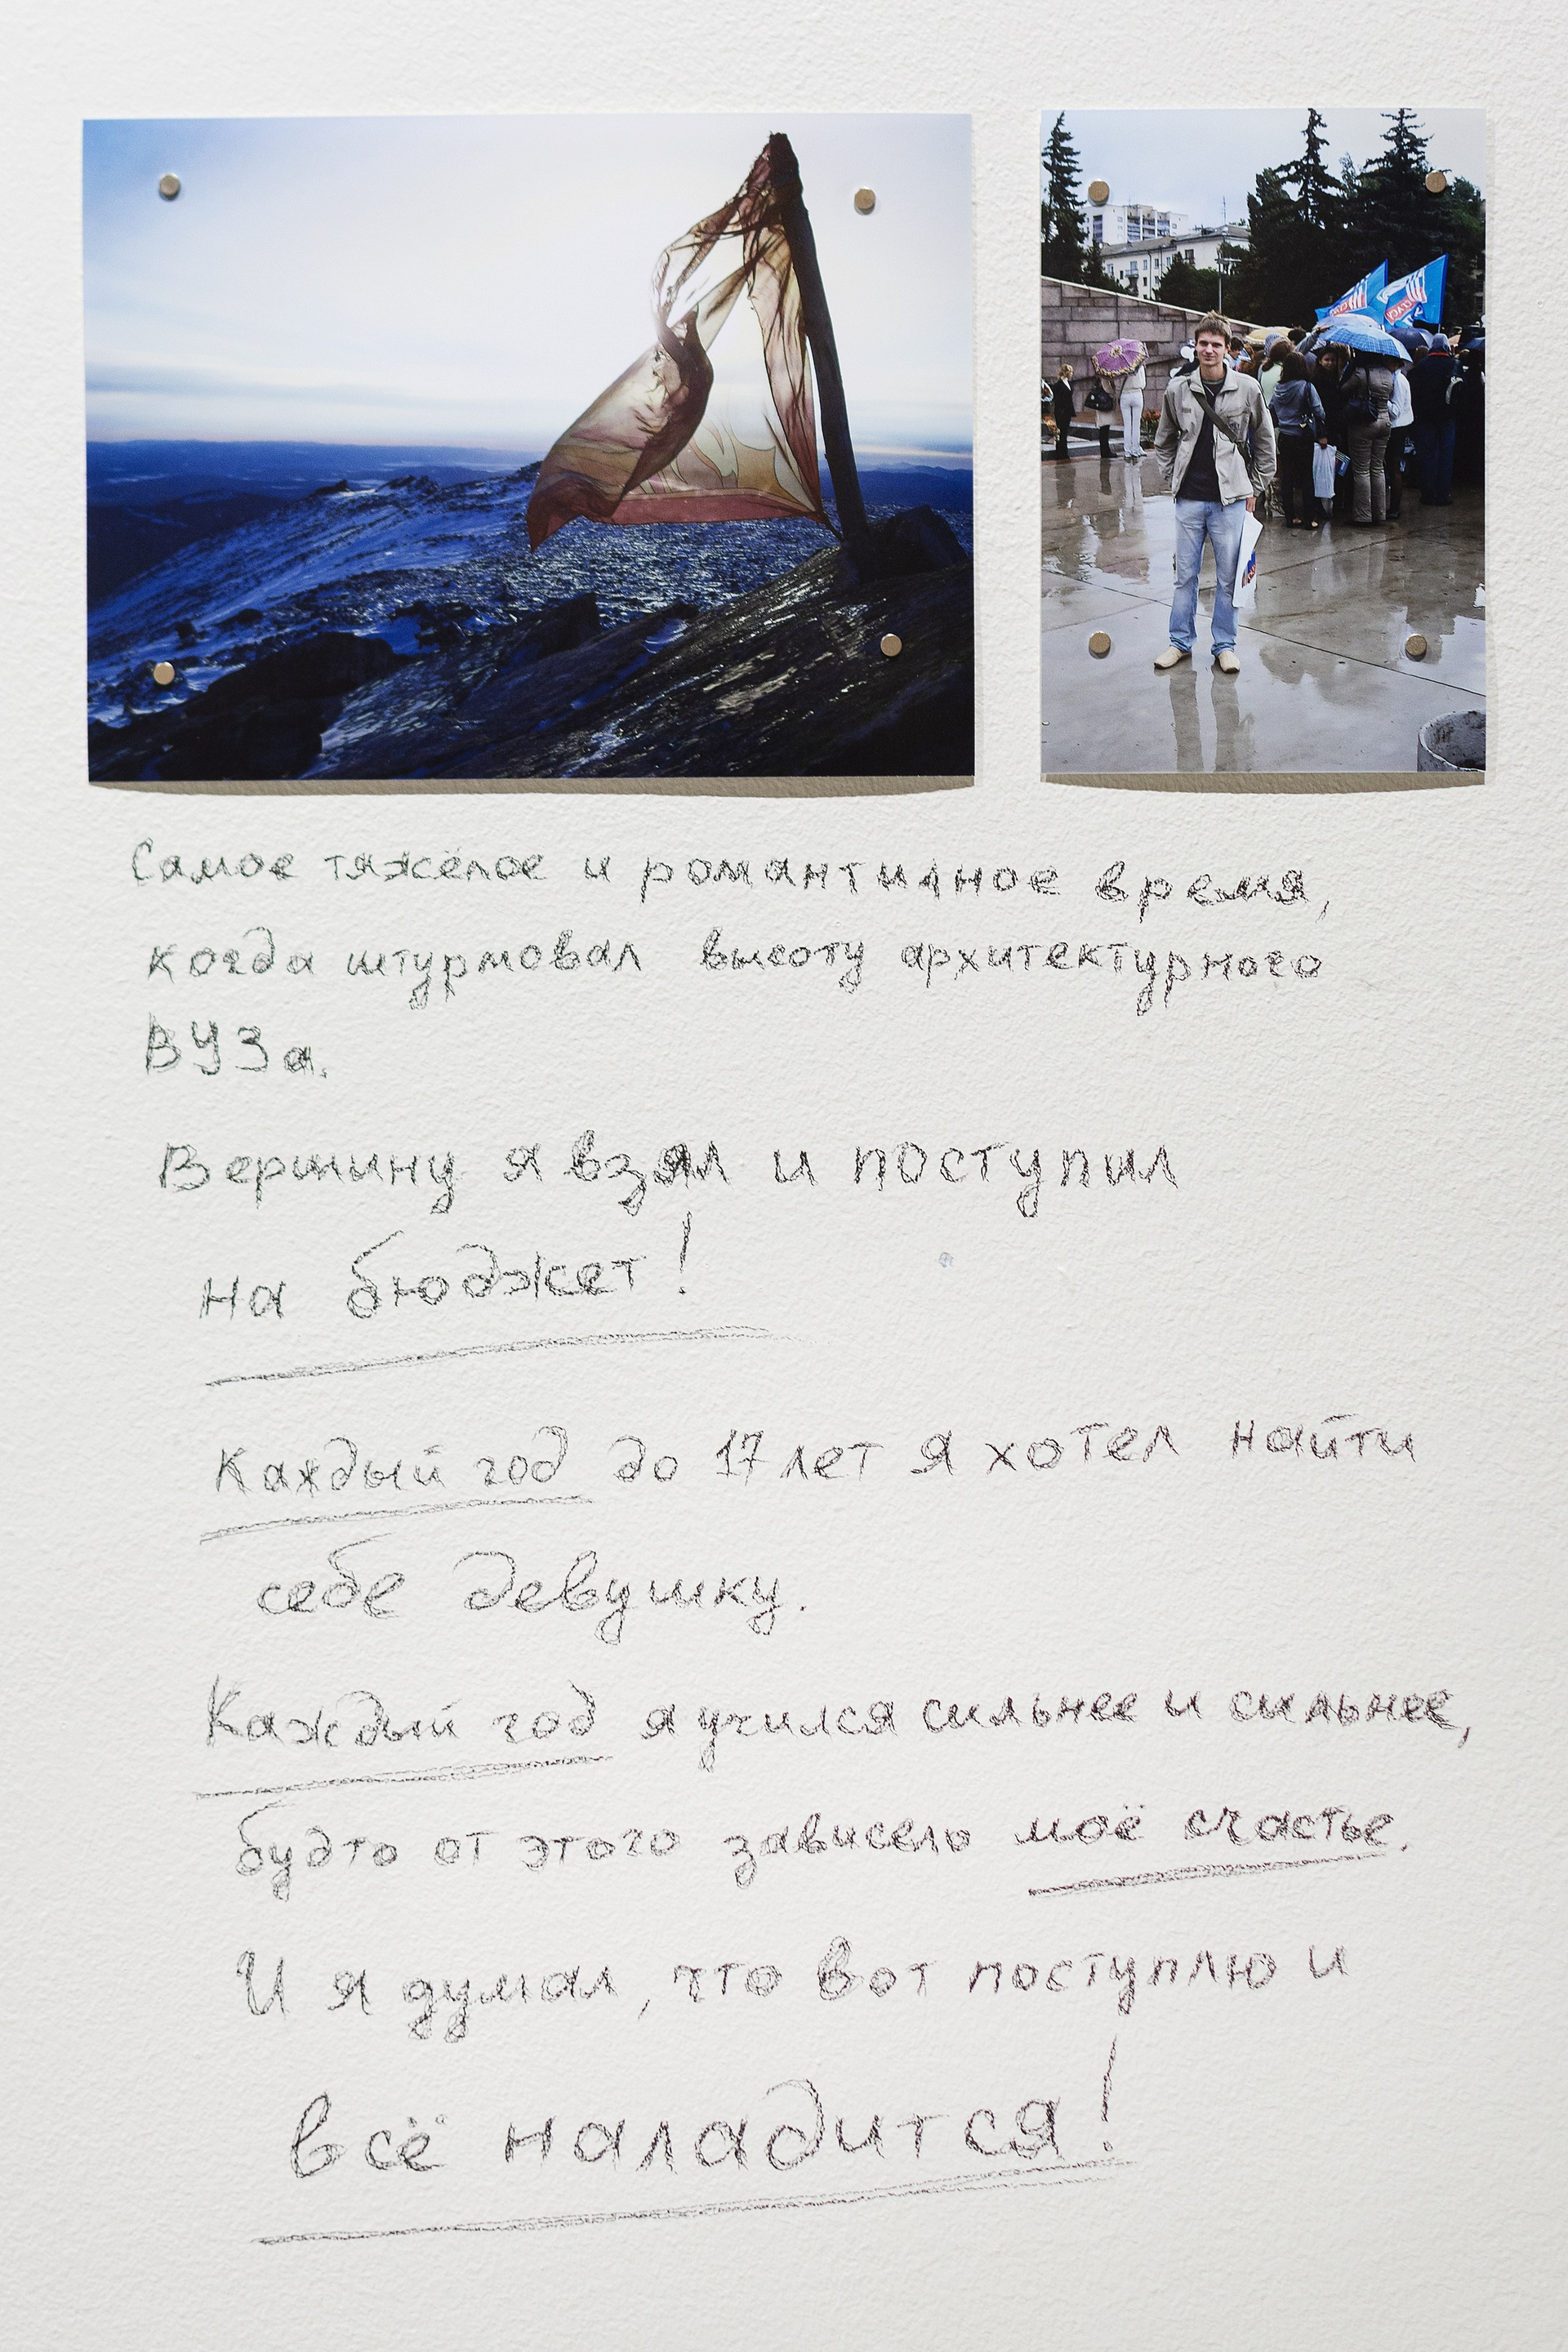 Самое тяжёлое и романтичное время,
когда штурмовал высоту архитектурного
ВУЗа.
Вершину я взял и поступил
на бюджет!
Каждый год до 17 лет я хотел найти
себе девушку.
Каждый год я учился сильнее и сильнее,
будто от этого зависело моё счастье.
И я думал, что вот поступлю и
всё наладится!